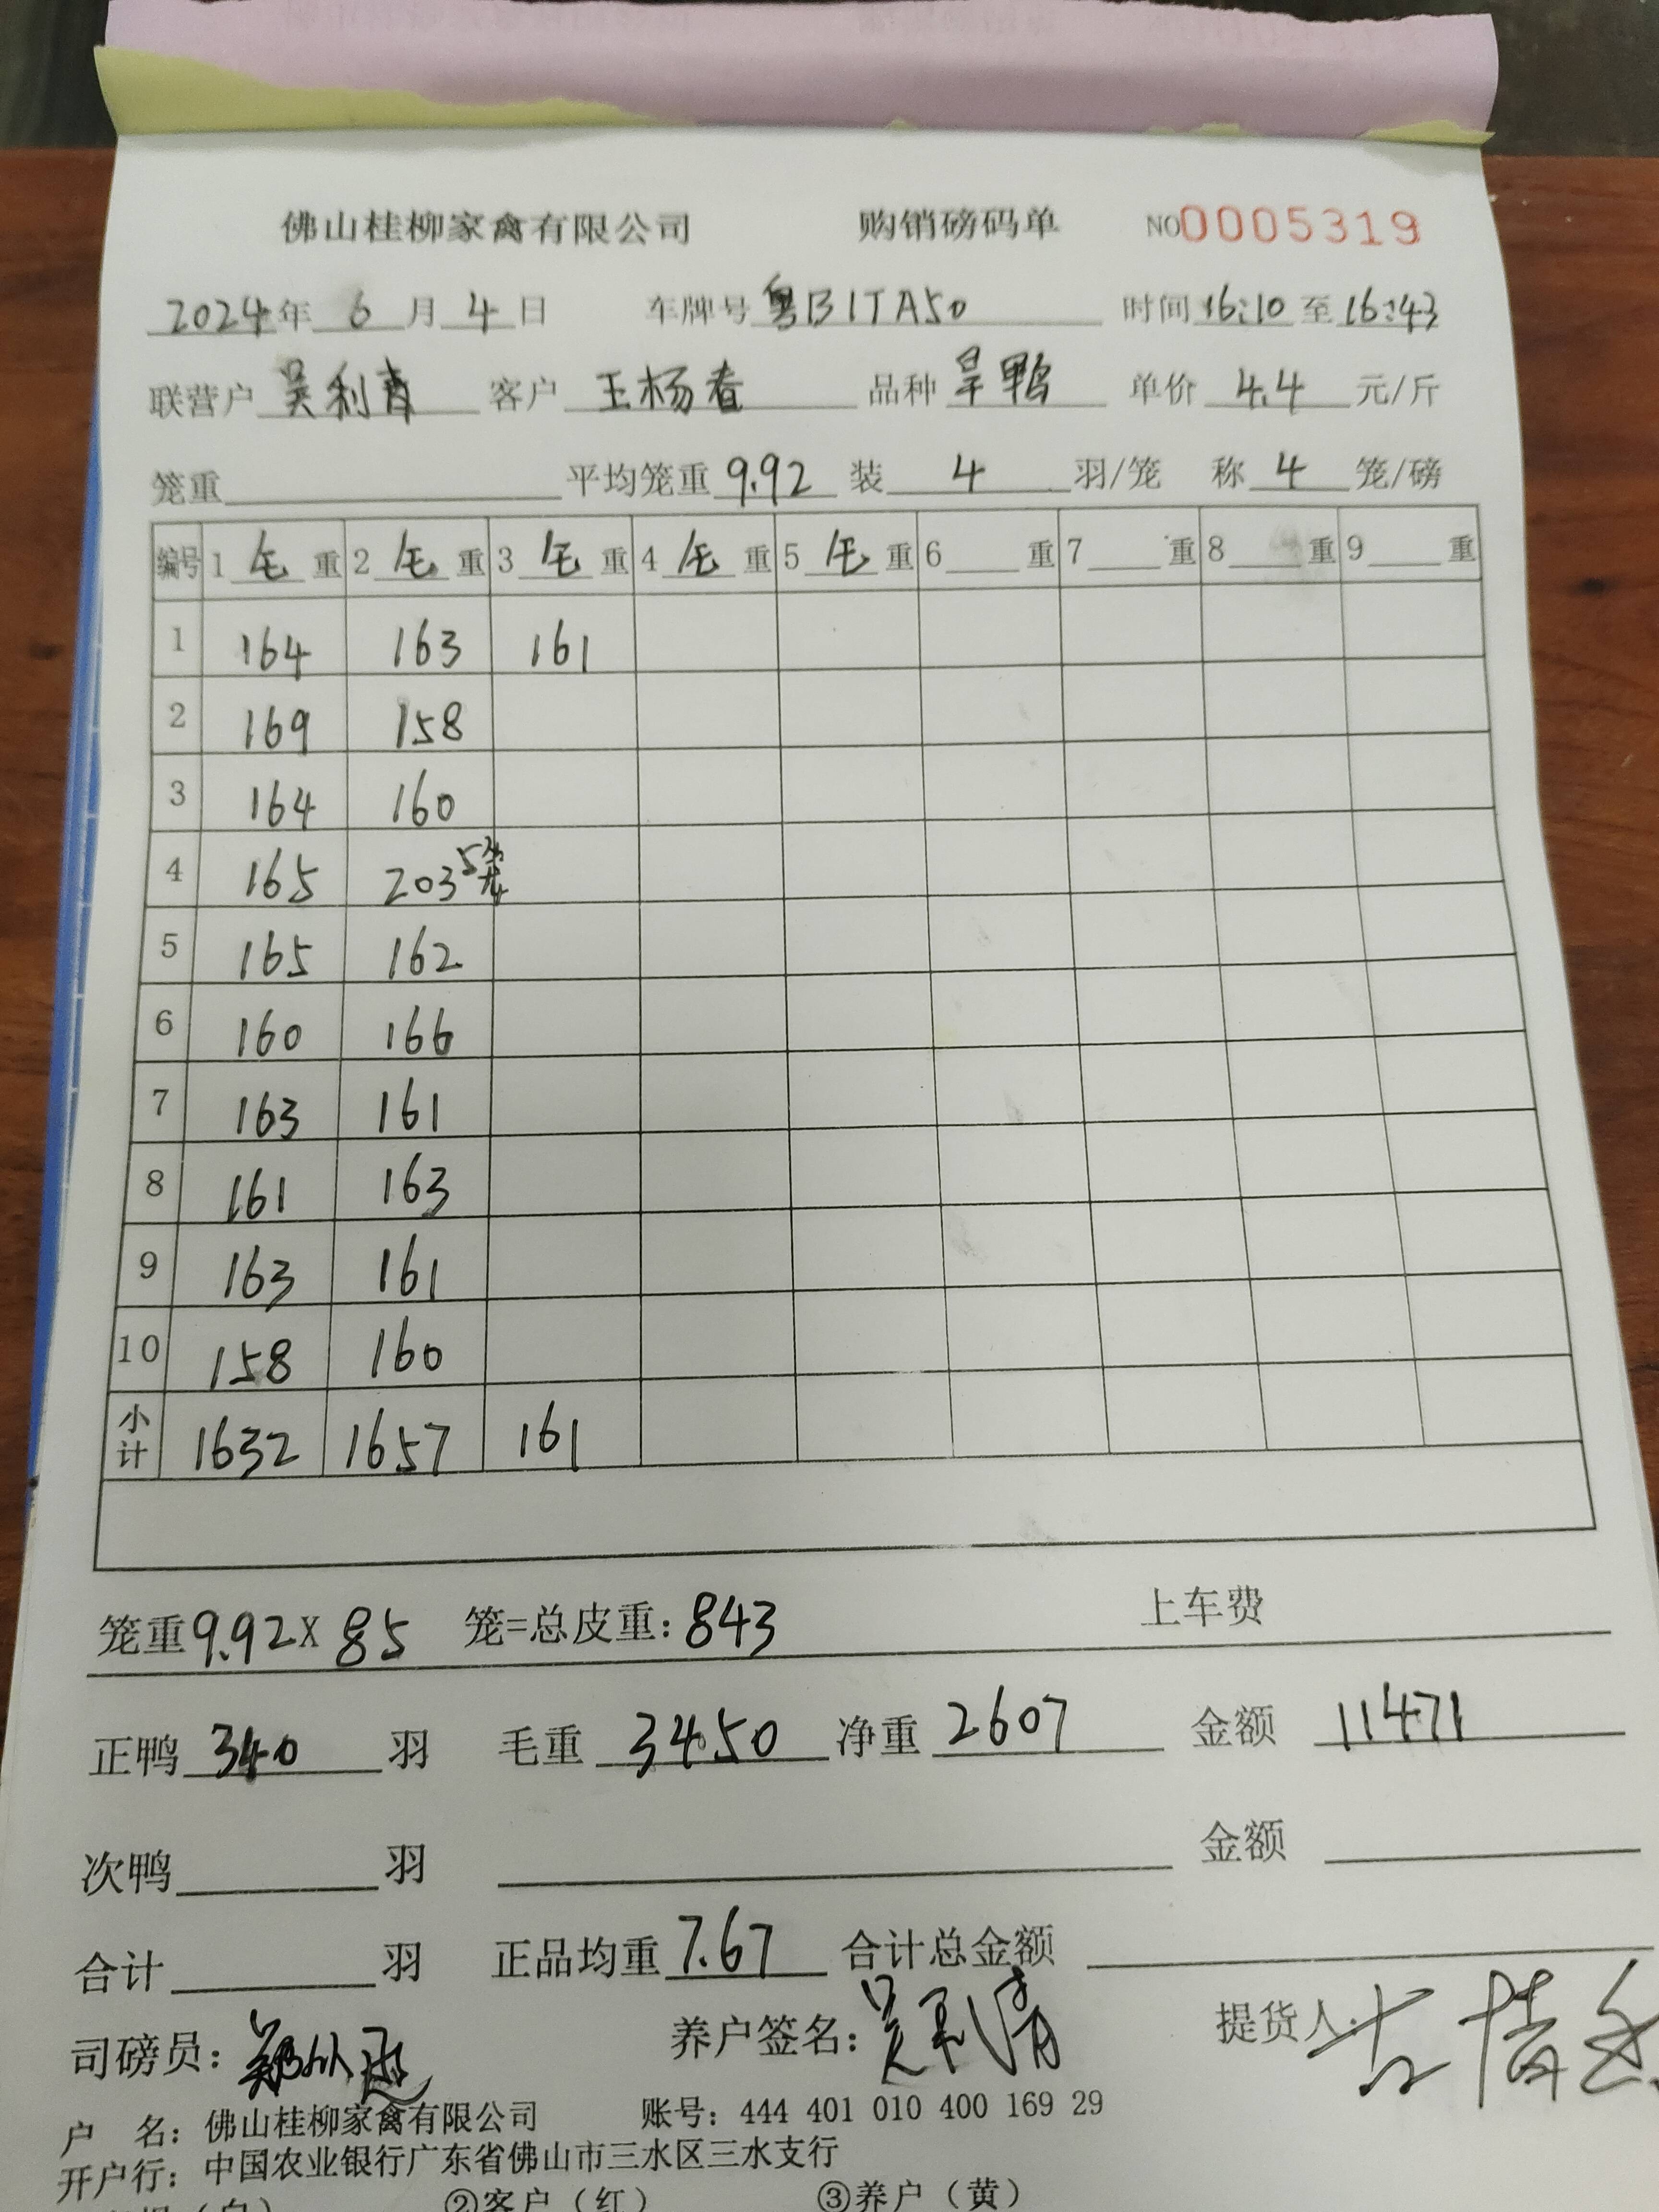 佛山桂柳家禽有限公司 购销磅码单 NO0005319
2024年 6 月 4 日 车牌号 粤B1TA50 时间 16:10 至 16:43
联营户 吴利青 客户 王杨春 品种 旱鸭 单价 4.4 元/斤
笼重 平均笼重 9.92 装 4 羽/笼 称 4 笼/磅
编号 1 毛 重 2 毛 重 3 毛 重 4 毛 重 5 毛 重 6 重 7 重 8 重 9 重
1 164 163 161
2 169 158
3 164 160
4 165 203 5笼
5 165 162
6 160 166
7 163 161
8 161 163
9 163 161
10 158 160
小计 1632 1657 161
笼重9.92X 85 笼=总皮重: 843 上车费
正鸭 340 羽 毛重 3450 净重 2607 金额 11471
次鸭 羽 金额
合计 羽 正品均重 7.67 合计总金额
司磅员: 养户签名: 吴利清 提货人:
户 名: 佛山桂柳家禽有限公司 账号: 444 401 010 400 169 29
开户行: 中国农业银行广东省佛山市三水区三水支行
②客户（红） ③养户（黄）